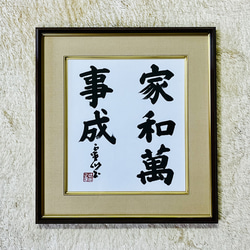 家和萬
事成